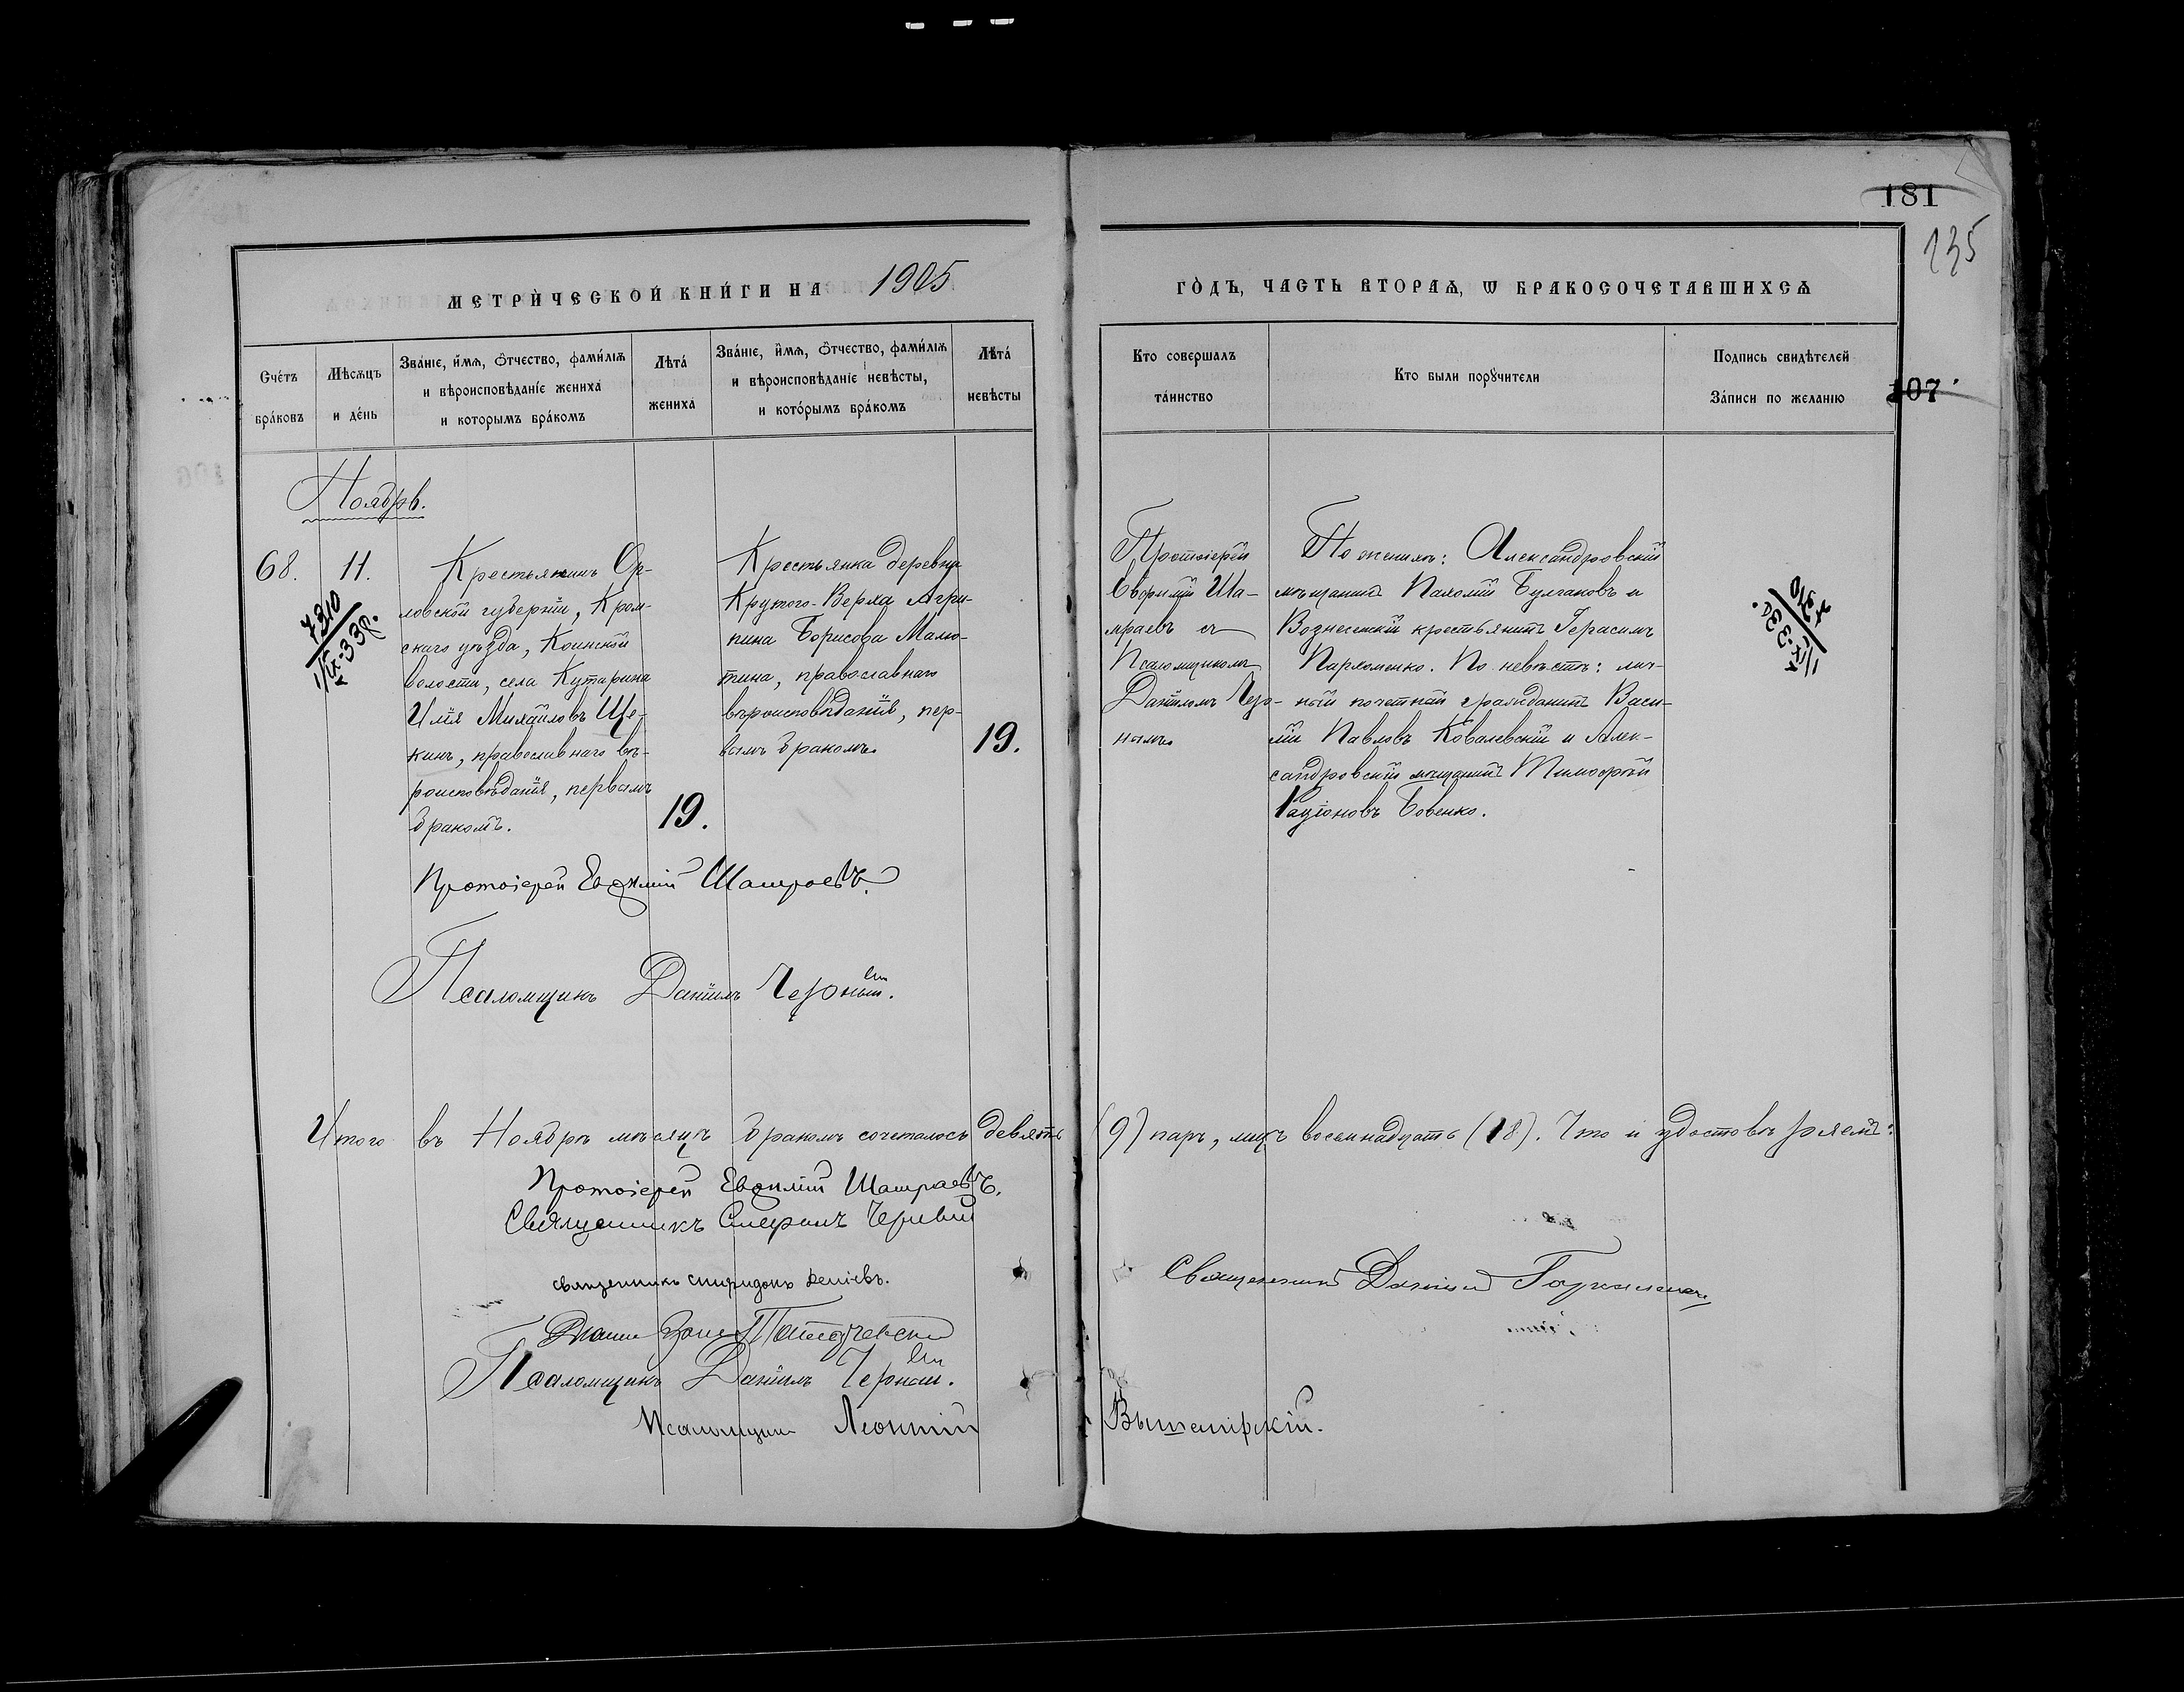 181
135
МЕТРИЧЕСКОЙ КНИГИ НА 1905
ГОДЪ, ЧАСТЬ ВТОРАѦ, Ѡ БРАКОСОЧЕТАВШИХСѦ
Счётъ браковъ
Мѣсѧцъ и день
Званїе, имѧ, ѻтчество, фамилїѧ и вѣроисповѣданїе жениха и которымъ бракомъ
Лѣта жениха
Званїе, имѧ, ѻтчество, фамилїѧ и вѣроисповѣданїе невѣсты, и которымъ бракомъ
Лѣта невѣсты
Кто совершалъ таинство
Кто были порꙋчители
Подпись свидѣтелей записи по желанїю
107
Ноябрь.
68.
11.
7310
11/IX-33г.
Крестьянинъ Ор-
ловской губерніи, Кром-
скаго уѣзда,
волости, села
Илія Михайловъ Ще-
кинъ, православнаго вѣ-
роисповѣданія, первымъ
бракомъ.
19.
Крестьянка деревни
Крутого-Верха Агри-
пина Борисова Малю-
тина, православнаго
вѣроисповѣданія, пер-
вымъ бракомъ.
19.
Протоіерей
Евфимій Ша-
мраевъ съ
Псаломщикомъ
Даніиломъ Чер-
нымъ.
По женихѣ: Александровскій
мѣщанинъ Пахомій Булгаковъ и
Вознесенскій крестьянинъ Герасимъ
Пархоменко. По невѣстѣ: лич-
ный почетный гражданинъ Васи-
лій Павловъ Ковалевскій и Алек-
сандровскій мѣщанинъ Тимофей
Бовенко.
7310
11/IX-33г.
Протоіерей Евфимій Шамраевъ.
Псаломщикъ Даніилъ Черный.
Итого въ Ноябрѣ мѣсяцѣ бракомъ сочеталось девять (9) паръ, лицъ восемнадцать (18). Что и удостовѣряемъ:
Протоіерей Евфимій Шамраевъ.
Священникъ
священникъ спиридонъ
Священникъ Даніилъ
Псаломщикъ Даніилъ Черный.
Псаломщикъ Леонтій